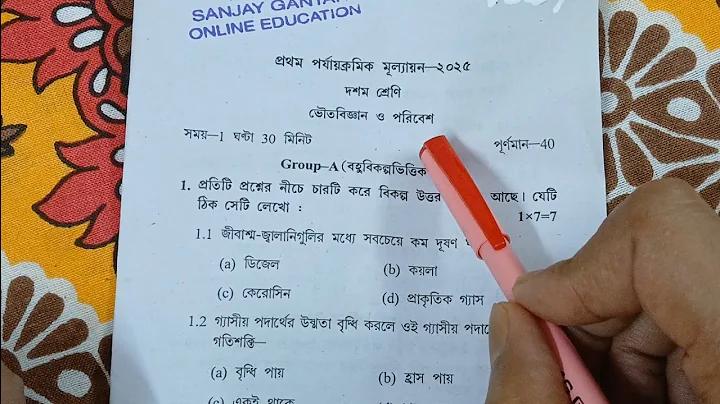 SANJAY
ONLINE EDUCATION
প্রথম পর্যায়ক্রমিক মূল্যায়ন—২০২৫
দশম শ্রেণি
ভৌতবিজ্ঞান ও পরিবেশ
সময়—1 ঘণ্টা 30 মিনিট
পূর্ণমান—40
Group–A (বহুবিকল্পভিত্তিক
1. প্রতিটি প্রশ্নের নীচে চারটি করে বিকল্প উত্তর আছে। যেটি
ঠিক সেটি লেখো :
1×7=7
1.1 জীবাশ্ম-জ্বালানিগুলির মধ্যে সবচেয়ে কম দূষণ
(a) ডিজেল
(b) কয়লা
(c) কেরোসিন
(d) প্রাকৃতিক গ্যাস
1.2 গ্যাসীয় পদার্থের উষ্ণতা বৃদ্ধি করলে ওই গ্যাসীয়
গতিশক্তি—
(a) বৃদ্ধি পায়
(b) হ্রাস পায়
(c) একই থাকে